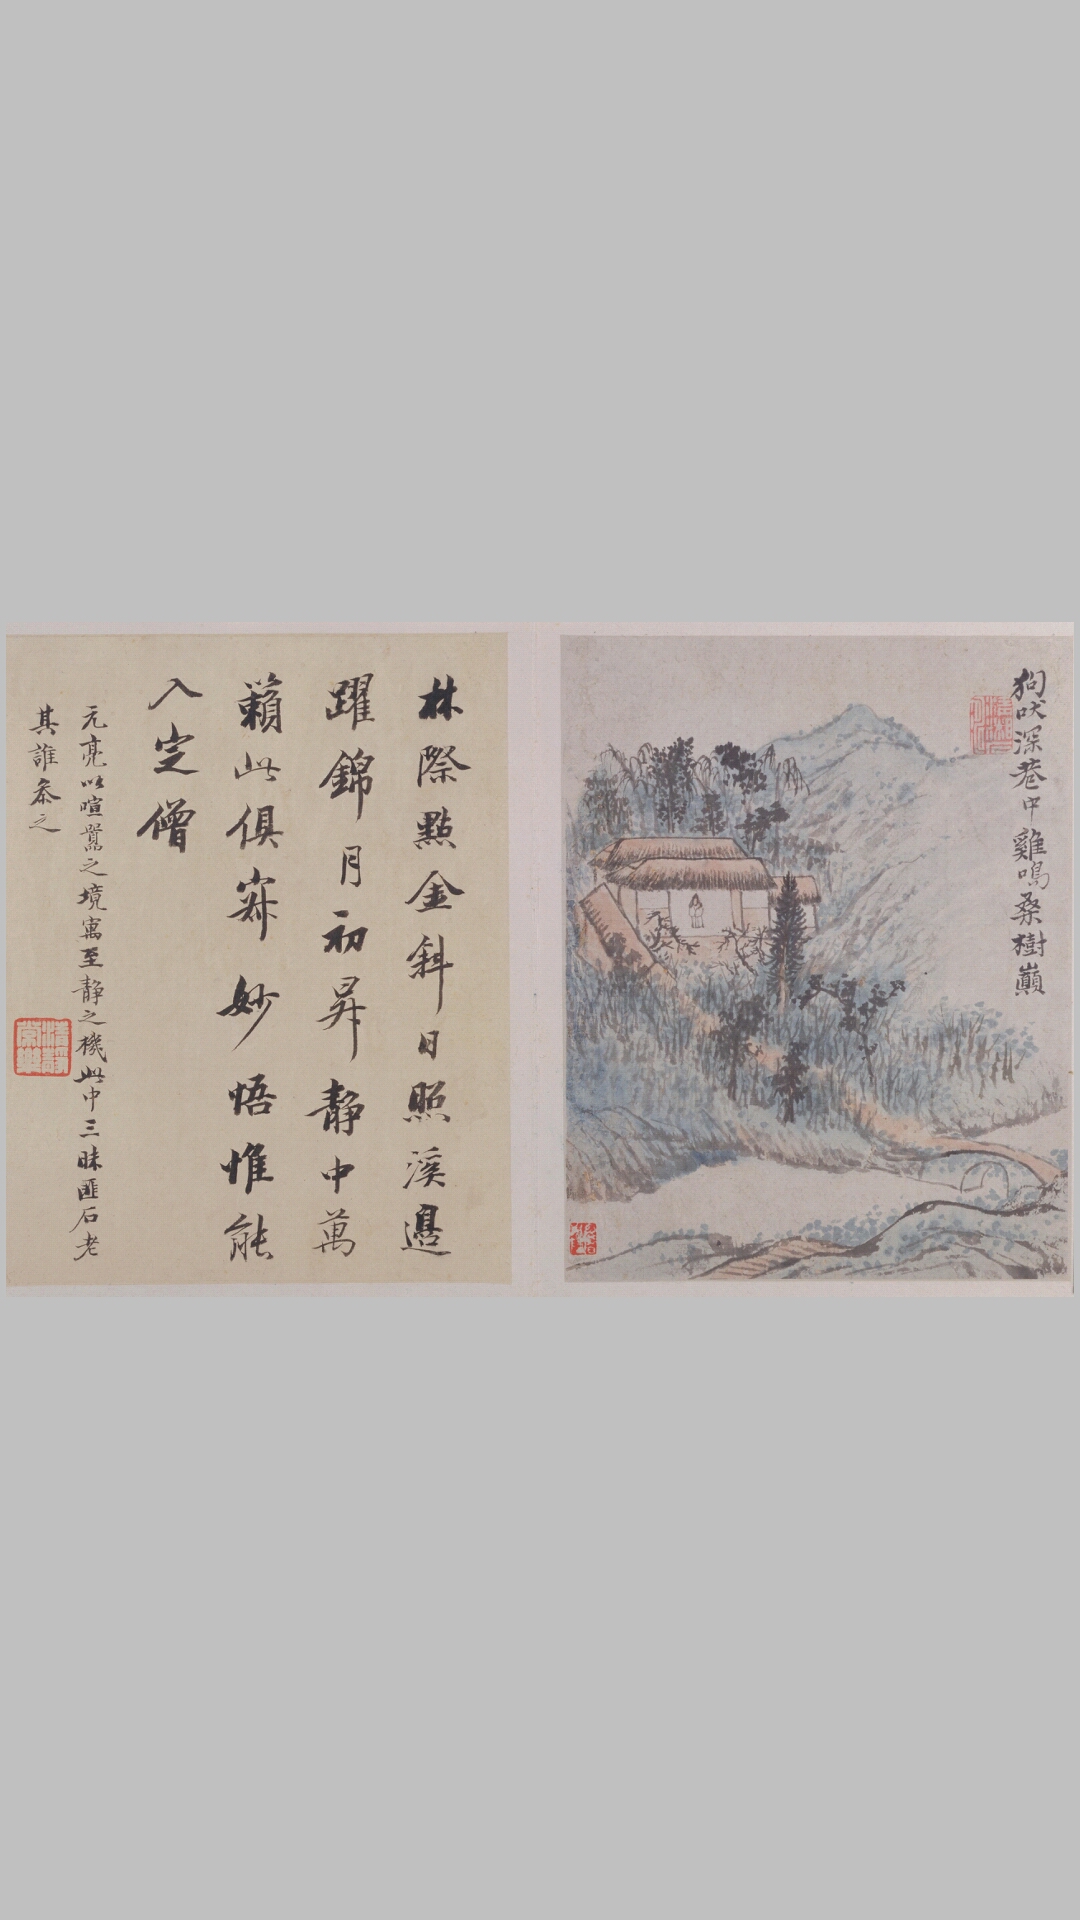 狗吠深巷中雞鳴桑樹巔
林際點金斜日照溪邊
躍錦月初昇靜中萬
籟此俱寂妙悟惟能
入定僧
元亮以喧囂之境寓至靜之機此中三昧匪石老
其誰參之